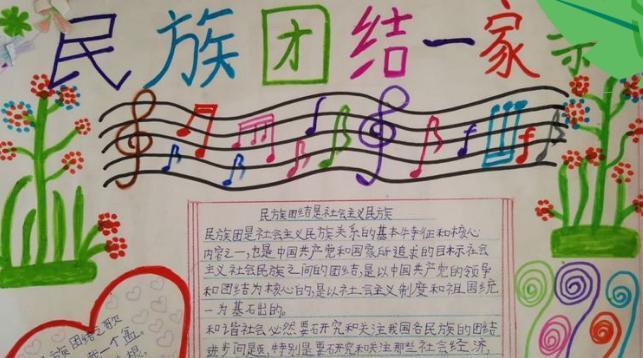 民族团结一家亲
民族团结是社会主义民族
民族团是社会主义民族关系的基本特征和核心
内容之一,也是中国共产党和国家所追求的目标示社会
主义社会民族之间的团结,是以中国共产党的领导
和团结为核心的,是以社会主义制度和祖国统
一为基石出的。
和谐社会必然要研究和关注我国各民族的团结
进步问题,特别是要研究和关注那些社会经济
族团结之歌